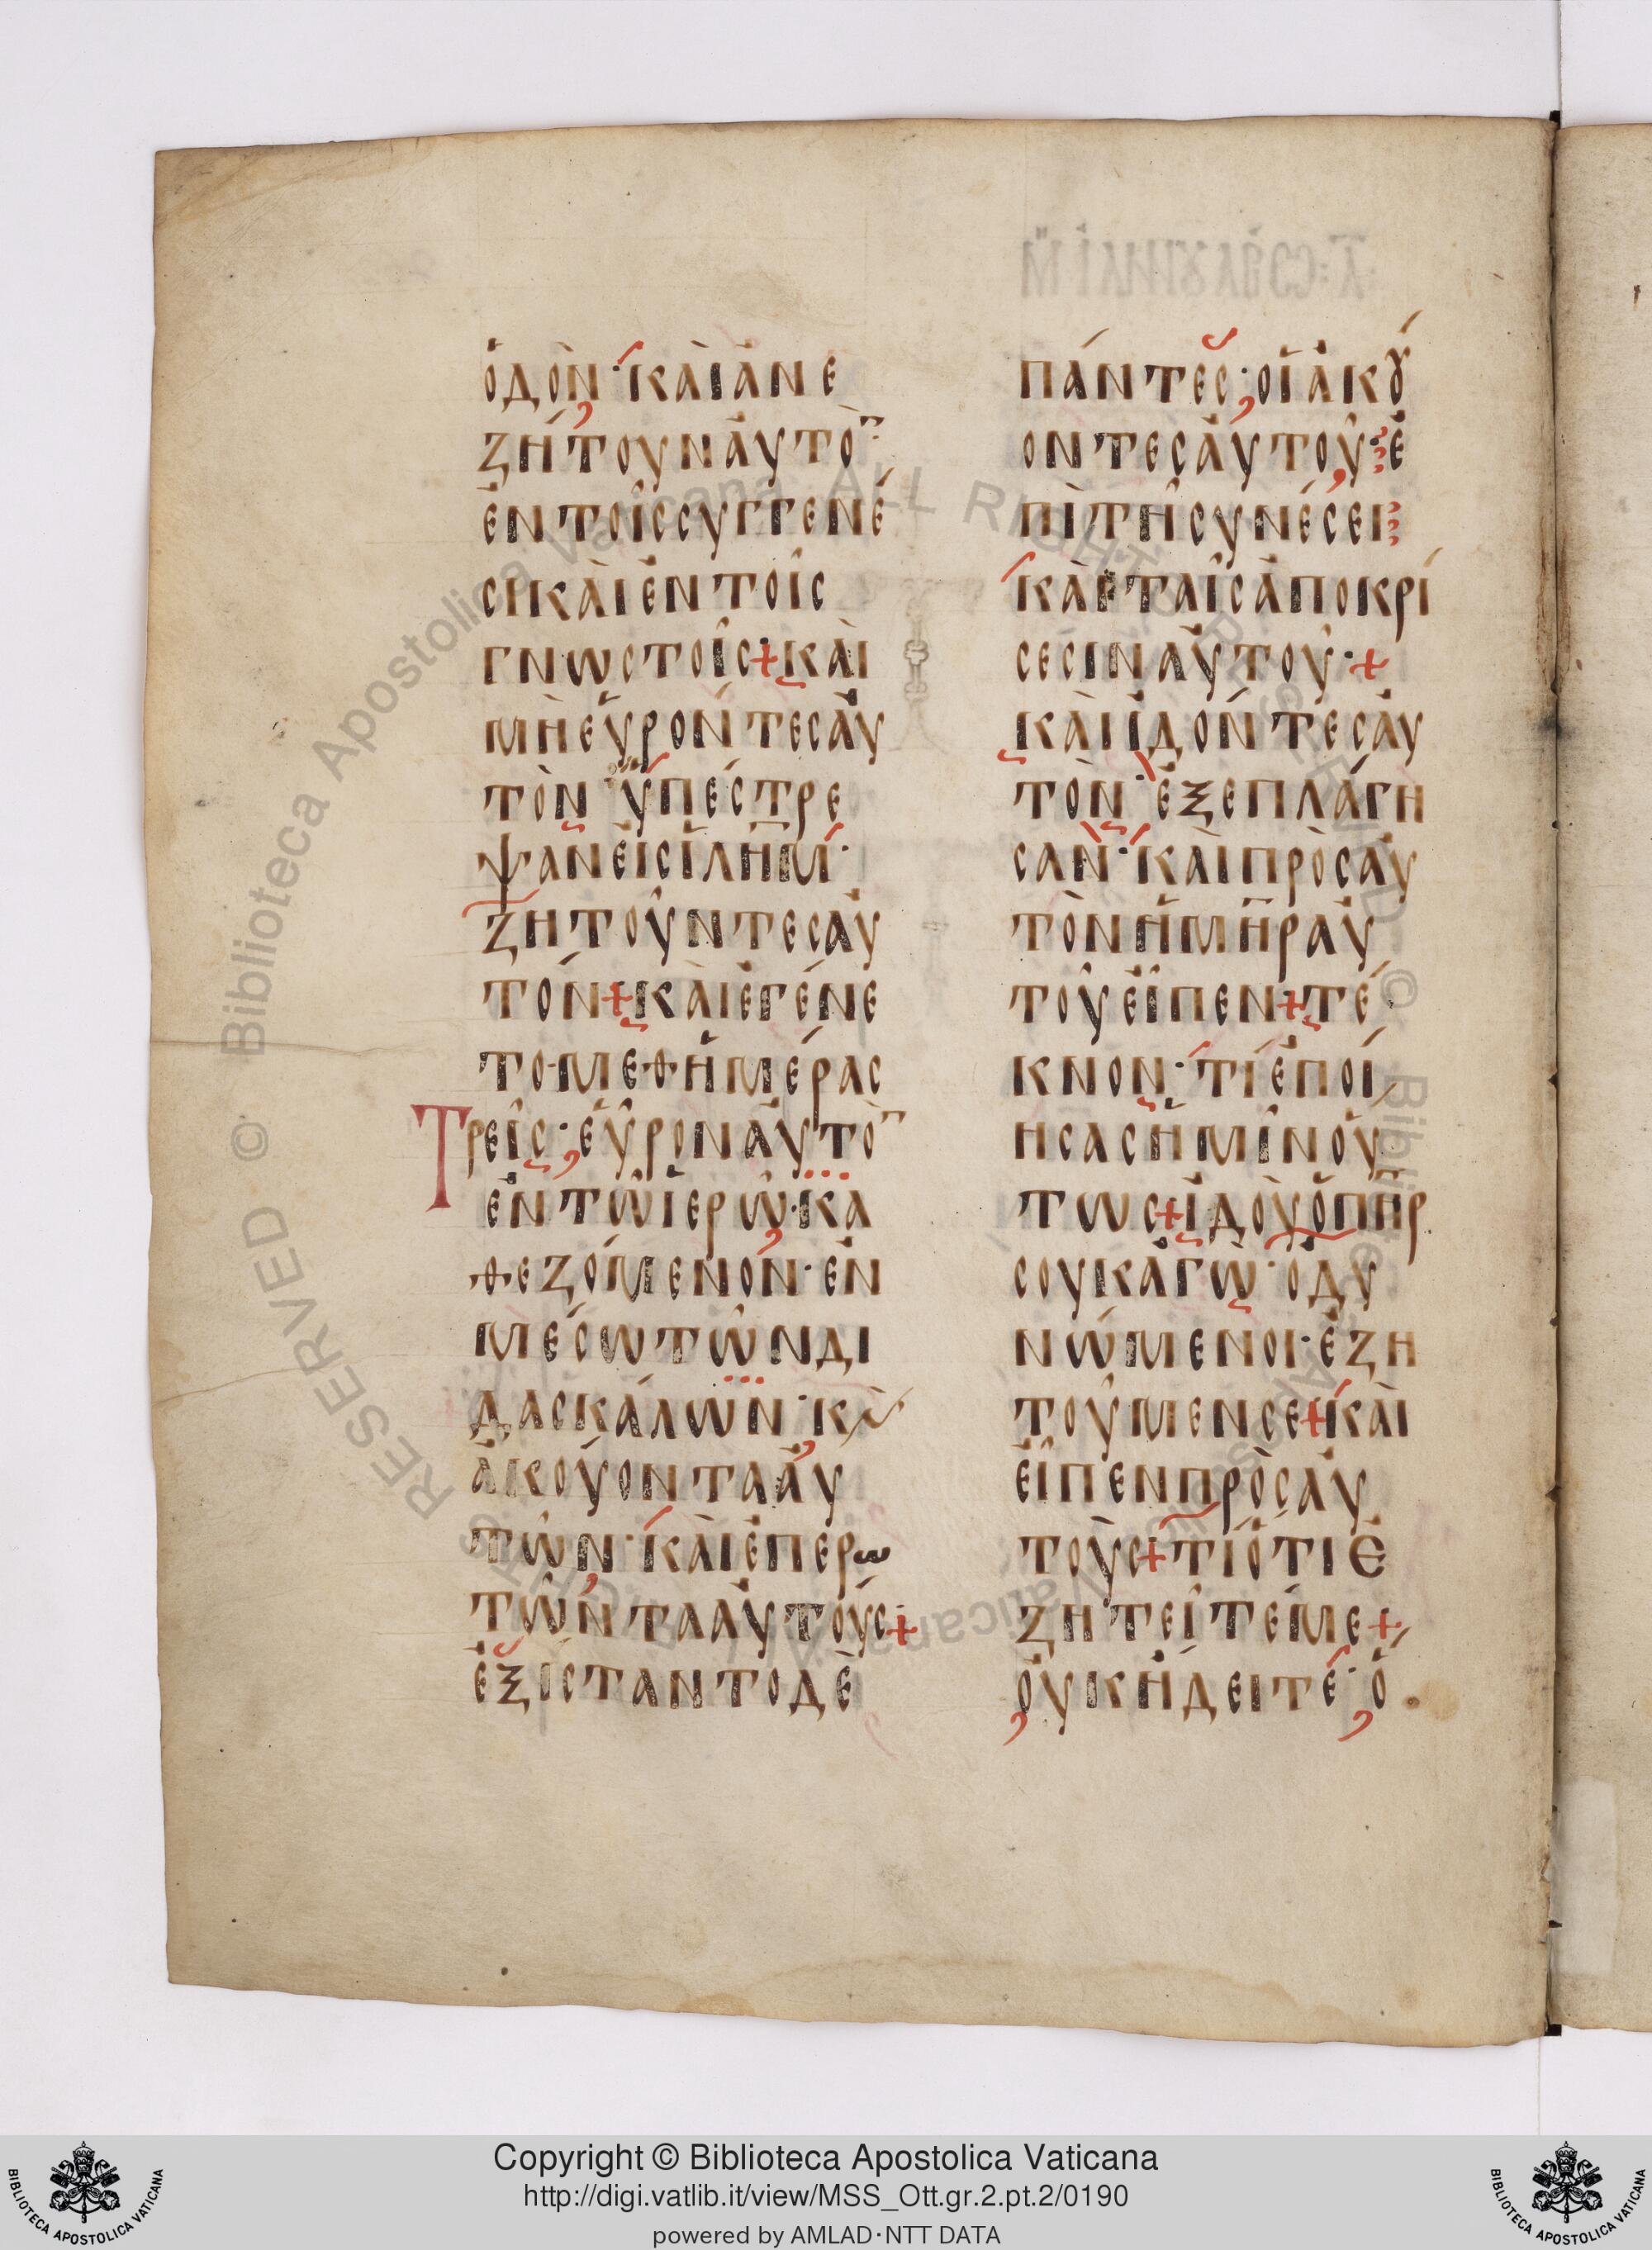 ὁδὸν· καὶ ἀνε
ζήτουν αὐτὸ̅
ἐν τοῖς συγγενέ
σι καὶ ἐν τοῖς
γνωστοῖς + καὶ
μὴ εὑρόντες αὐ
τὸν· ὑπέστρε
ψαν εἰς ἰλη̅μ·
ζητοῦντες αὐ
τόν + καὶ ἐγένε
το μεθ ἡμέρας
τρεῖς· εὗρον αὐτὸ̅
ἐν τῷ ἱερῷ· κα
θεζόμενον· ἐν
μέσω τῶν δι
δασκάλων· κ̀
ἀκούοντα αὐ
τῶν· καὶ ἐπερω
τῶντα αὐτούς +
ἐξίσταντο δὲ
πάντες· οἱ ἀκȣ́
οντες αὐτοῦ· ἐ
πὶ τῇ συνέσει
καὶ ταῖς ἀποκρί
σεσιν αὐτοῦ· +
καὶ ἰδόντες αὐ
τὸν· ἐξεπλάγη
σαν· καὶ πρὸς αὐ
τὸν ἡ μη̅ρ αὐ
τοῦ εἶπεν + τέ
κνον· τί ἐποί
ησας ἡμῖν οὕ
τως + ἰδοὺ ὁ πη̅ρ
σου κἀγὼ· ὀδυ
νώμενοι· ἐζη
τοῦμεν σε + καὶ
εἶπεν πρὸς αὐ
τούς + τί ὅτι ἐ
ζητεῖτέ με +
οὐκ ἤδειτε· ὅ
Copyright © Biblioteca Apostolica Vaticana
http://digi.vatlib.it/view/MSS_Ott.gr.2.pt.2/0190
powered by AMLAD·NTT DATA
BIBLIOTECA APOSTOLICA VATICANA
BIBLIOTECA APOSTOLICA VATICANA